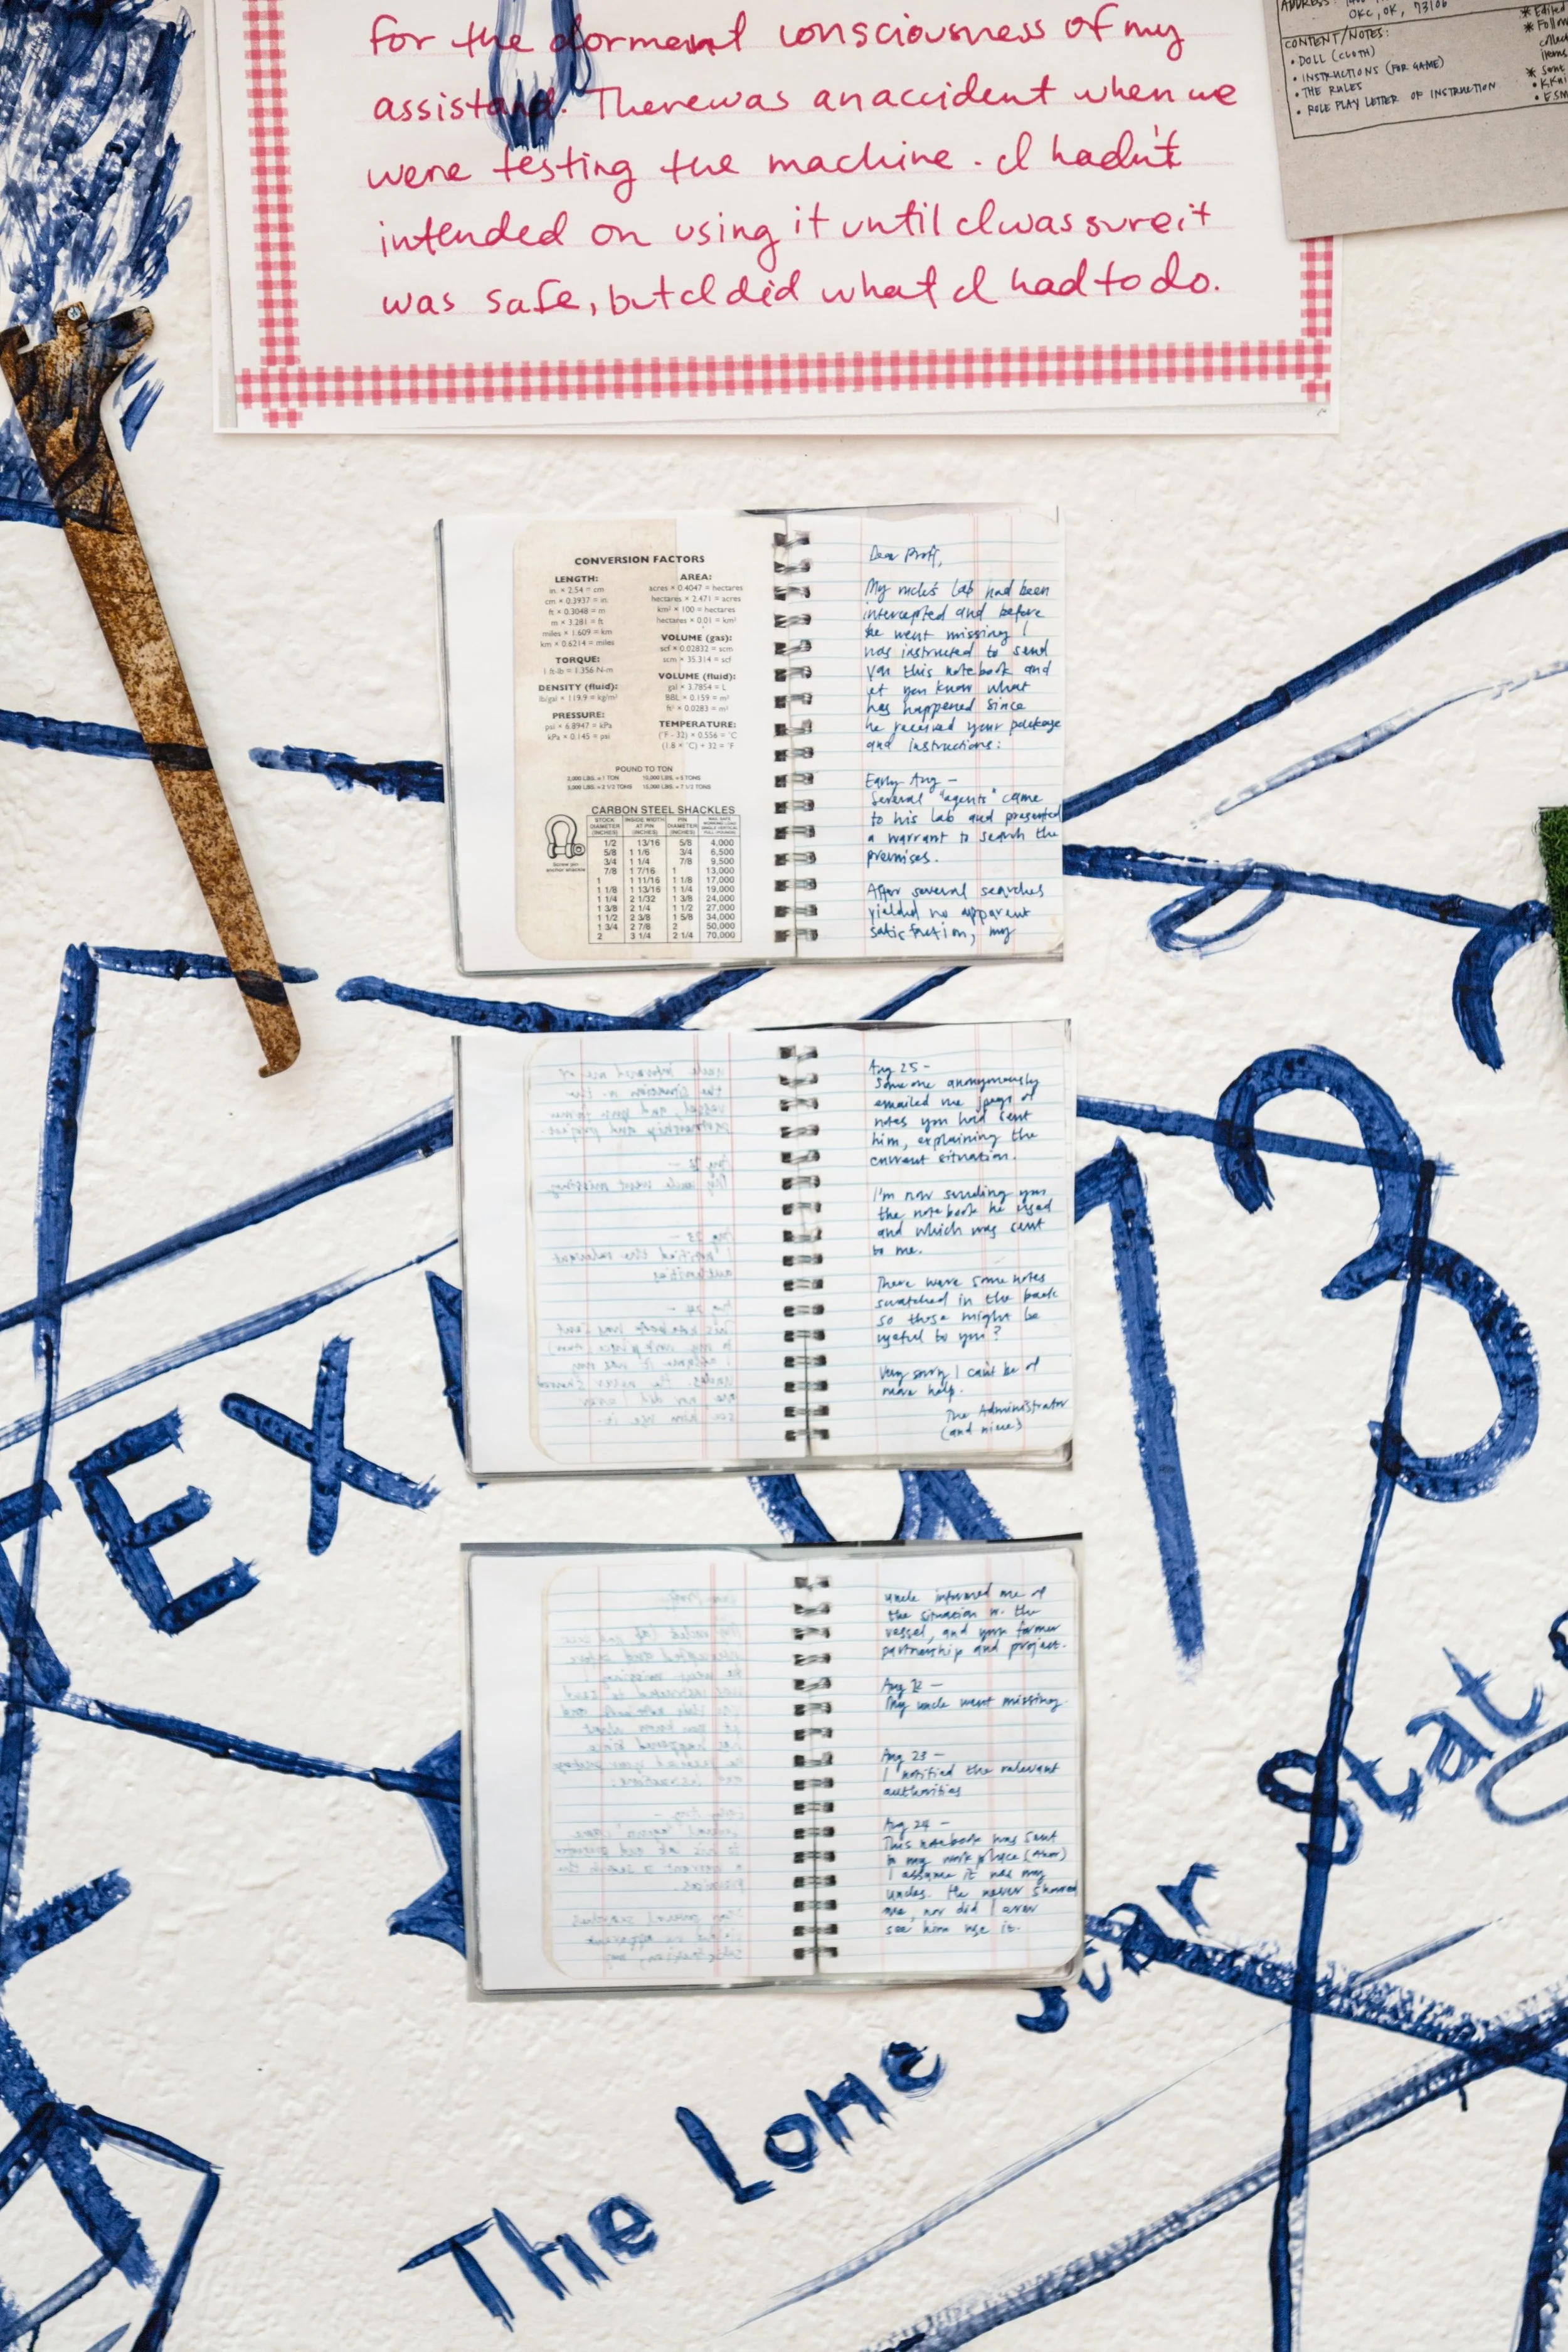 for the forment consciousness of my
assistant. There was an accident when we
were testing the machine. I hadn't
intended on using it until I was sure it
was safe, but I did what I had to do.
ADDRESS:
OKC, OK, 73106
CONTENT/NOTES:
• DOLL (CLOTH)
• INSTRUCTIONS (FOR GAME)
• THE RULES
• ROLE PLAY LETTER OF INSTRUCTION
* Edited
* Follow
collect
items
* Some
CONVERSION FACTORS
LENGTH:
in. × 2.54 = cm
cm × 0.3937 = in
ft × 0.3048 = m
m × 3.281 = ft
miles × 1.609 = km
km × 0.6214 = miles
TORQUE:
1 ft-lb = 1.356 N-m
DENSITY (fluid):
lb/gal × 119.9 = kg/m³
PRESSURE:
psi × 6.8947 = kPa
kPa × 0.145 = psi
AREA:
acres × 0.4047 = hectares
hectares × 2.471 = acres
km² × 100 = hectares
hectares × 0.01 = km²
VOLUME (gas):
scf × 0.02832 = scm
scm × 35.314 = scf
VOLUME (fluid):
gal × 3.7854 = L
BBL × 0.159 = m³
ft³ × 0.0283 = m³
TEMPERATURE:
(°F - 32) × 0.556 = °C
(1.8 × °C) + 32 = °F
POUND TO TON
2,000 LBS. = 1 TON 10,000 LBS. = 5 TONS
5,000 LBS. = 2 1/2 TONS 15,000 LBS. = 7 1/2 TONS
CARBON STEEL SHACKLES
Screw pin
anchor shackle
STOCK DIAMETER (INCHES) INSIDE WIDTH AT PIN (INCHES) PIN DIAMETER (INCHES)
1/2 13/16 5/8 4,000
5/8 1 1/6 3/4 6,500
3/4 1 1/4 7/8 9,500
7/8 1 7/16 1 13,000
1 1 11/16 1 1/8 17,000
1 1/8 1 13/16 1 1/4 19,000
1 1/4 2 1/32 1 3/8 24,000
1 3/8 2 1/4 1 1/2 27,000
1 1/2 2 3/8 1 5/8 34,000
1 3/4 2 7/8 2 50,000
2 3 1/4 2 1/4 70,000
Dear Proff,
My uncle's Lab had been
intercepted and before
he went missing I
was instructed to send
you this notebook and
let you know what
has happened since
he received your package
and instructions:
Early Aug -
Several "agents" came
to his lab and presented
a warrant to search the
premises.
After several searches
yielded no apparent
satisfaction, my
Aug 25 -
Someone anonymously
emailed me jpegs of
notes you had sent
him, explaining the
current situation.
I'm now sending you
the notebook he used
and which was sent
to me.
There were some notes
scratched in the back
so those might be
useful to you?
Very sorry I can't be of
more help.
The Administrator
(and niece)
uncle informed me of
the situation w. the
vessel, and your former
partnership and project.
Aug 12 -
My uncle went missing.
Aug 23 -
I notified the relevant
authorities
Aug 24 -
This notebook was sent
to my work place
I assume it was my
uncles. He never showed
me, nor did I ever
see him use it.
TEX
173
The Lone Star Stat